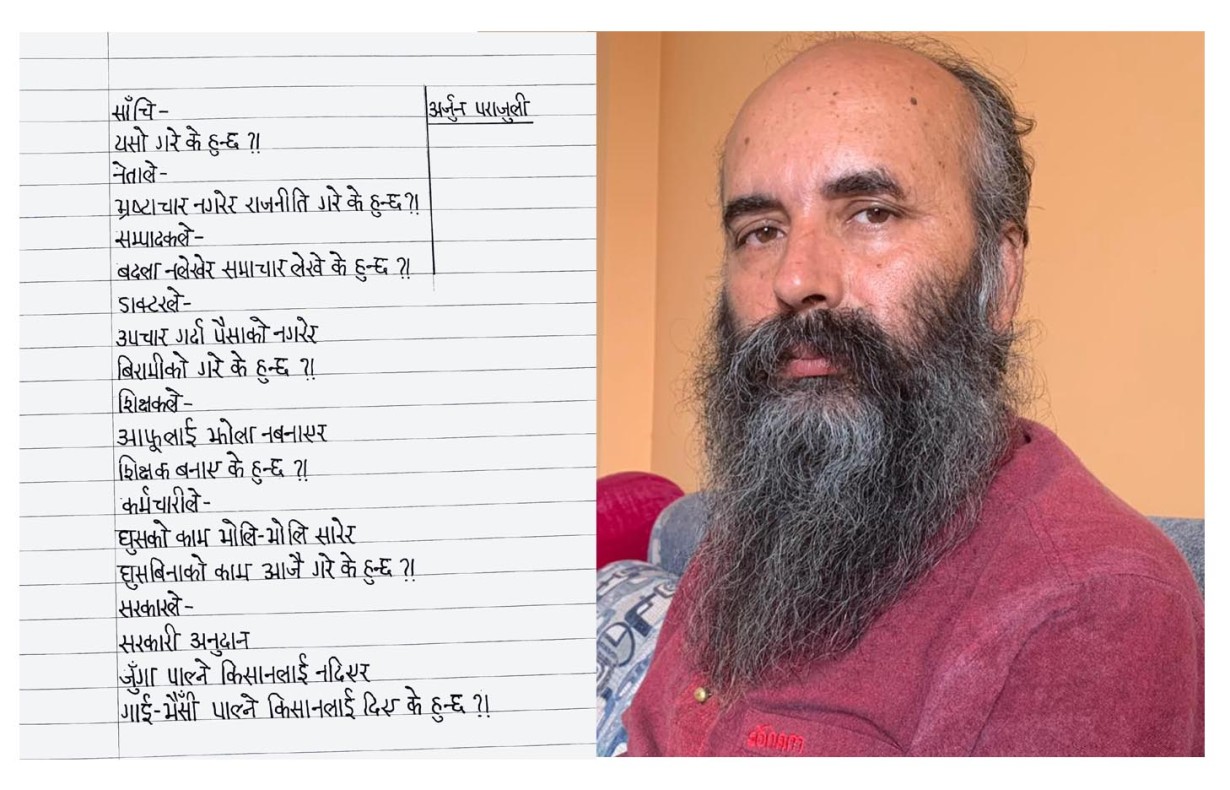 साँचि-
अर्जुन पराजुली
यसो गरे के हुन्छ ?!
नेताले-
भ्रष्टाचार नगरेर राजनीति गरे के हुन्छ ?!
सम्पादकले-
बदला नलेखेर समाचार लेखे के हुन्छ ?!
डाक्टरले-
उपचार गर्दा पैसाको नगरेर
बिरामीको गरे के हुन्छ ?!
शिक्षकले-
आफूलाई झोला नबनाएर
शिक्षक बनाए के हुन्छ ?!
कर्मचारीले-
घुसको काम भोलि-भोलि सारेर
घुसबिनाको काम आजै गरे के हुन्छ ?!
सरकारले-
सरकारी अनुदान
जुँगा पाल्ने किसानलाई नदिएर
गाई-भैँसी पाल्ने किसानलाई दिए के हुन्छ ?!